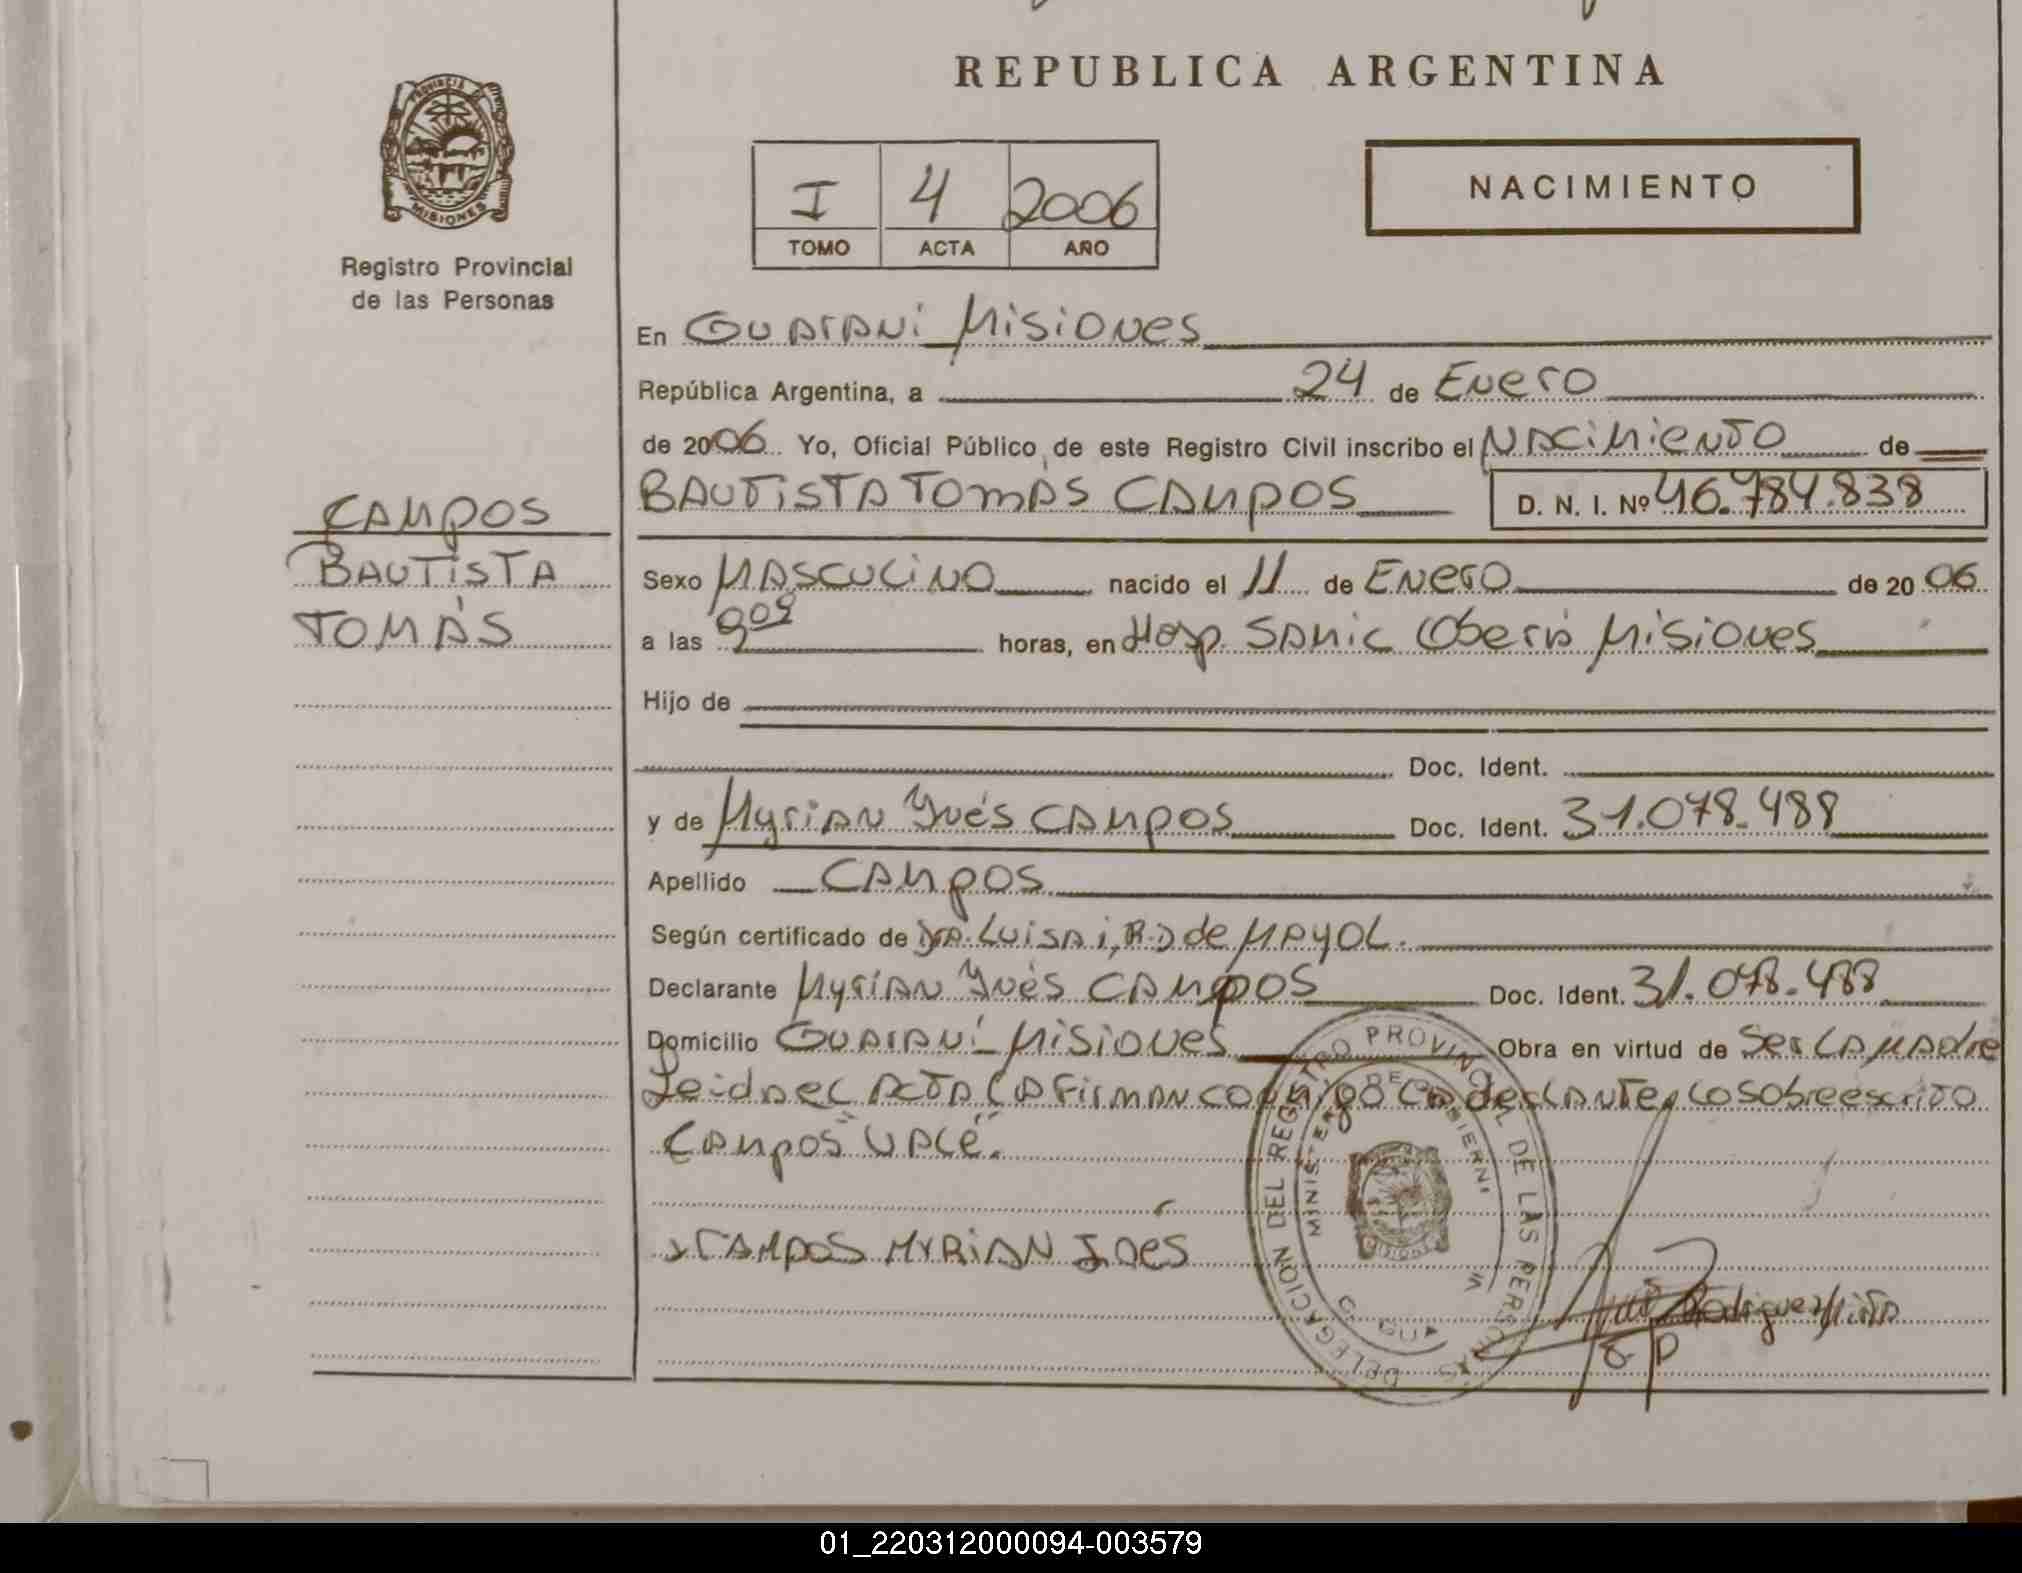 REPUBLICA ARGENTINA
PROVINCIA DE
MISIONES
Registro Provincial
de las Personas
I 4 2006
TOMO ACTA AÑO
NACIMIENTO
En Guaraní Misiones
República Argentina, a 24 de Enero
de 2006 Yo, Oficial Público de este Registro Civil inscribo el NACIMIENTO de
BAUTISTA TOMÁS CAMPOS D. N. I. Nº 46.784.838
CAMPOS
BAUTISTA
TOMÁS
Sexo MASCULINO nacido el 11 de ENERO de 2006
a las 9 horas, en Hosp. SAMIC Oberá Misiones
Hijo de
Doc. Ident.
y de Myrian Ynés CAMPOS Doc. Ident. 31.078.488
Apellido CAMPOS
Según certificado de Dra. LUISA i, R.D de MAYOL.
Declarante Myrian Ynés CAMPOS Doc. Ident. 31.078.488
Domicilio Guaraní Misiones Obra en virtud de Ser LA MAdre
Leida el ACTA LA FirmAN conmigo LA declante, lo Sobreescrito
"Campos" VALE.
CAMPOS MYRIAN INÉS
DELEGACION DEL REGISTRO PROVINCIAL DE LAS PERSONAS
MINISTERIO DE GOBIERNO
Rodriguez
01_220312000094-003579